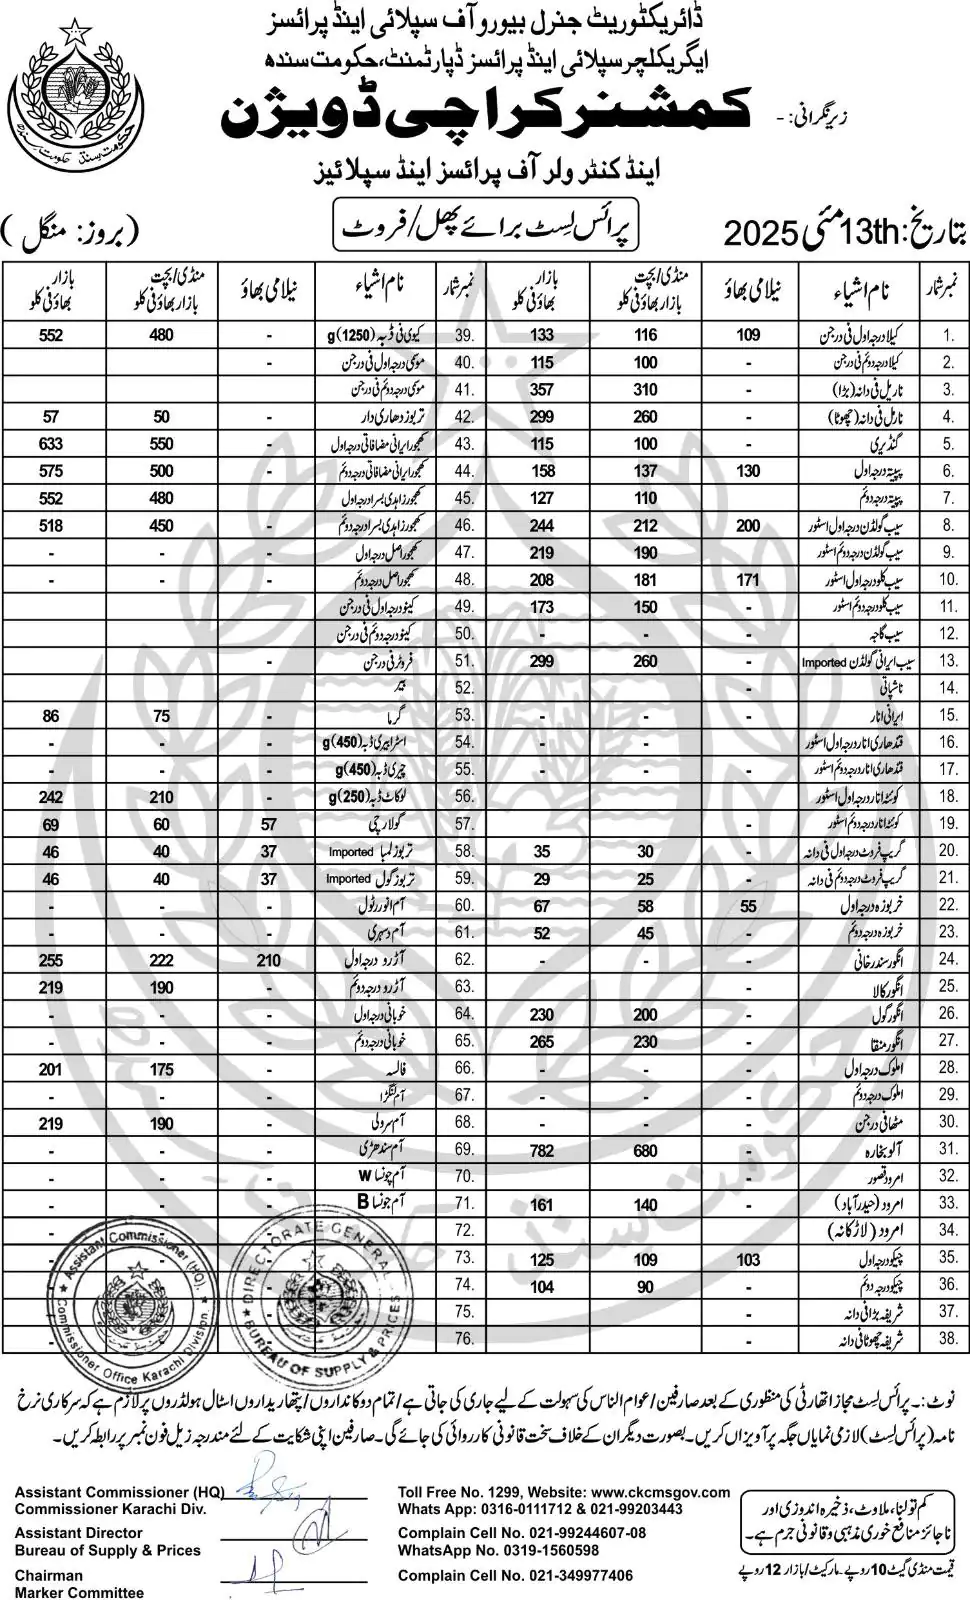 ڈائریکٹوریٹ جنرل بیورو آف سپلائی اینڈ پرائسز
ایگریکلچر سپلائی اینڈ پرائسز ڈپارٹمنٹ، حکومت سندھ
زیر نگرانی: - کمشنر کراچی ڈویژن
اینڈ کنٹرولر آف پرائسز اینڈ سپلائیز
بتاریخ: 13th مئی 2025 پرائس لسٹ برائے پھل/فروٹ (بروز: منگل)
نمبر شمار نام اشیاء نیلامی بھاؤ منڈی/بچت بازار بھاؤ فی کلو بازار بھاؤ فی کلو نمبر شمار نام اشیاء نیلامی بھاؤ منڈی/بچت بازار بھاؤ فی کلو بازار بھاؤ فی کلو
1. کیلا درجہ اول فی درجن 109 116 133 39. کیوی فی ڈبہ (1250)g - 480 552
2. کیلا درجہ دوئم فی درجن - 100 115 40. موسمی درجہ اول فی درجن -
3. ناریل فی دانہ (بڑا) 310 357 41. موسمی درجہ دوئم فی درجن
4. ناریل فی دانہ (چھوٹا) - 260 299 42. تربوز دھاری دار - 50 57
5. گنڈیری - 100 115 43. کھجور ایرانی مضافاتی درجہ اول - 550 633
6. پپیتہ درجہ اول 130 137 158 44. کھجور ایرانی مضافاتی درجہ دوئم - 500 575
7. پپیتہ درجہ دوئم 110 127 45. کھجور زاہدی بسرا درجہ اول - 480 552
8. سیب گولڈن درجہ اول اسٹور 200 212 244 46. کھجور زاہدی بسرا درجہ دوئم - 450 518
9. سیب گولڈن درجہ دوئم اسٹور - 190 219 47. کھجور اصل درجہ اول - -
10. سیب کلو درجہ اول اسٹور 171 181 208 48. کھجور اصل درجہ دوئم - - -
11. سیب کلو درجہ دوئم اسٹور - 150 173 49. کینو درجہ اول فی درجن -
12. سیب گاجہ - - - 50. کینو درجہ دوئم فی درجن
13. سیب ایرانی گولڈن Imported - 260 299 51. فروٹر فی درجن -
14. ناشپاتی - 52. بیر
15. ایرانی انار - - - 53. گرما - 75 86
16. قندھاری انار درجہ اول اسٹور - - - 54. اسٹرابیری ڈبہ (450)g - - -
17. قندھاری انار درجہ دوئم اسٹور - - - 55. چیری ڈبہ (450)g - - -
18. کوئٹہ انار درجہ اول اسٹور 56. لوکاٹ ڈبہ (250)g - 210 242
19. کوئٹہ انار درجہ دوئم اسٹور - 57. گولارچی 57 60 69
20. گریپ فروٹ درجہ اول فی دانہ - 30 35 58. تربوز لمبا Imported 37 40 46
21. گریپ فروٹ درجہ دوئم فی دانہ - 25 29 59. تربوز گول Imported 37 40 46
22. خربوزہ درجہ اول 55 58 67 60. آم انور رٹول - - -
23. خربوزہ درجہ دوئم - 45 52 61. آم دسہری - - -
24. انگور سندرخانی - - - 62. آڑو درجہ اول 210 222 255
25. انگور کالا 63. آڑو درجہ دوئم - 190 219
26. انگور گول - 200 230 64. خوبانی درجہ اول - - -
27. انگور منقا - 230 265 65. خوبانی درجہ دوئم - - -
28. املوک درجہ اول - - - 66. فالسہ - 175 201
29. املوک درجہ دوئم - - - 67. آم لنگڑا - - -
30. مٹھا فی درجن - - - 68. آم سرولی - 190 219
31. آلو بخارہ - 680 782 69. آم سندھڑی - - -
32. امرود قصور - 70. آم چونسا W - - -
33. امرود (حیدرآباد) - 140 161 71. آم چونسا B - - -
34. امرود (لاڑکانہ) 72. - -
35. چیکو درجہ اول 103 109 125 73. - -
36. چیکو درجہ دوئم - 90 104 74. - -
37. شریفہ بڑا فی دانہ - 75. -
38. شریفہ چھوٹا فی دانہ - 76. - -
Assistant Commissioner (HQ)
Commissioner Office Karachi Division
DIRECTORATE GENERAL
BUREAU OF SUPPLY & PRICES
نوٹ:۔ پرائس لسٹ مجاز اتھارٹی کی منظوری کے بعد صارفین/عوام الناس کی سہولت کے لیے جاری کی جاتی ہے/تمام دوکانداروں/پتھاریداروں اسٹال ہولڈروں پر لازم ہے کہ سرکاری نرخ
نامہ (پرائس لسٹ) لازمی نمایاں جگہ پر آویزاں کریں۔ بصورت دیگر ان کے خلاف سخت قانونی کارروائی کی جائے گی۔ صارفین اپنی شکایت کے لئے مندرجہ زیل فون نمبر پر رابطہ کریں۔
Assistant Commissioner (HQ)
Commissioner Karachi Div.
Assistant Director
Bureau of Supply & Prices
Chairman
Marker Committee
Toll Free No. 1299, Website: www.ckcmsgov.com
Whats App: 0316-0111712 & 021-99203443
Complain Cell No. 021-99244607-08
WhatsApp No. 0319-1560598
Complain Cell No. 021-349977406
کم تولنا، ملاوٹ، ذخیرہ اندوزی اور
ناجائز منافع خوری مذہبی و قانونی جرم ہے۔
قیمت منڈی گیٹ 10 روپے۔ مارکیٹ/بازار 12 روپے